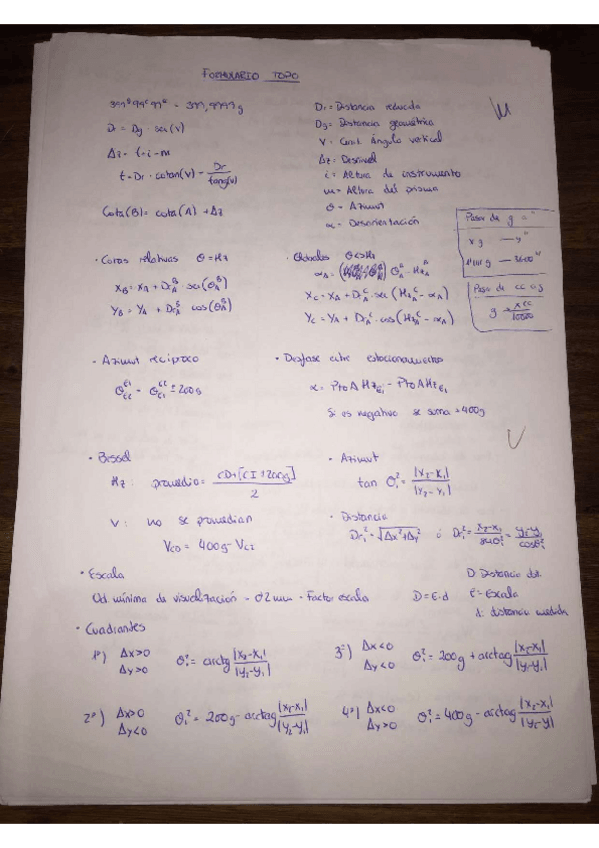 FORMULARIO TOPO
399g 99c 99cc = 399,9999g
Dr = Dg · sen(V)
Δz = t+i-m
t = Dr · cotan(V) = Dr / tang(V)
Cota(B) = Cota(A) + Δz
Dr = Distancia reducida
Dg = Distancia geométrica
V = Ángulo vertical
Δz = Desnivel
i = Altura de instrumento
m = Altura del prisma
θ = Azimut
α = Desorientación
Paso de g = "
x g → y"
1 g → 3600"
Paso de cc a g
y = x cc / 10000
· Coras relativas θ = Hz
X_B = X_A + Dr_A^B · sen(θ_A^B)
Y_B = Y_A + Dr_A^B cos(θ_A^B)
· θ<>Hz
α_A = θ_A^B - Hz_A^B
X_C = X_A + Dr_A^C · sen(Hz_A^C - α_A)
Y_C = Y_A + Dr_A^C · cos(Hz_A^C - α_A)
· Azimut recíproco
± 200g
· Desfase entre estacionamientos
α = Pto A Hz_E1 - Pto A Hz_E1
Si es negativo se suma +400g
· Bissel
Hz: promedio = CD+[CI±200g] / 2
V: no se promedian
V_CD = 400g - V_CI
· Azimut
tan θ_1^2 = |X_2-X_1| / |Y_2-Y_1|
· Distancia
Dr_1^2 = √Δx²+Δy² ó Dr_1^2 = X_2-X_1 / senθ_1^2 = Y_2-Y_1 / cosθ_1^2
· Escala
Ud. mínima de visualización = 0'2 mm · Factor escala
D = E·d
D: Distancia
E = escala
d: distancia medida
· Cuadrantes
1º) Δx>0 Δy>0 θ_1^2 = arctg |X_2-X_1| / |Y_2-Y_1|
3º) Δx<0 Δy<0 θ_1^2 = 200g + arctag |X_2-X_1| / |Y_2-Y_1|
2º) Δx>0 Δy<0 θ_1^2 = 200g - arctag |X_2-X_1| / |Y_2-Y_1|
4º) Δx<0 Δy>0 θ_1^2 = 400g - arctag |X_2-X_1| / |Y_2-Y_1|